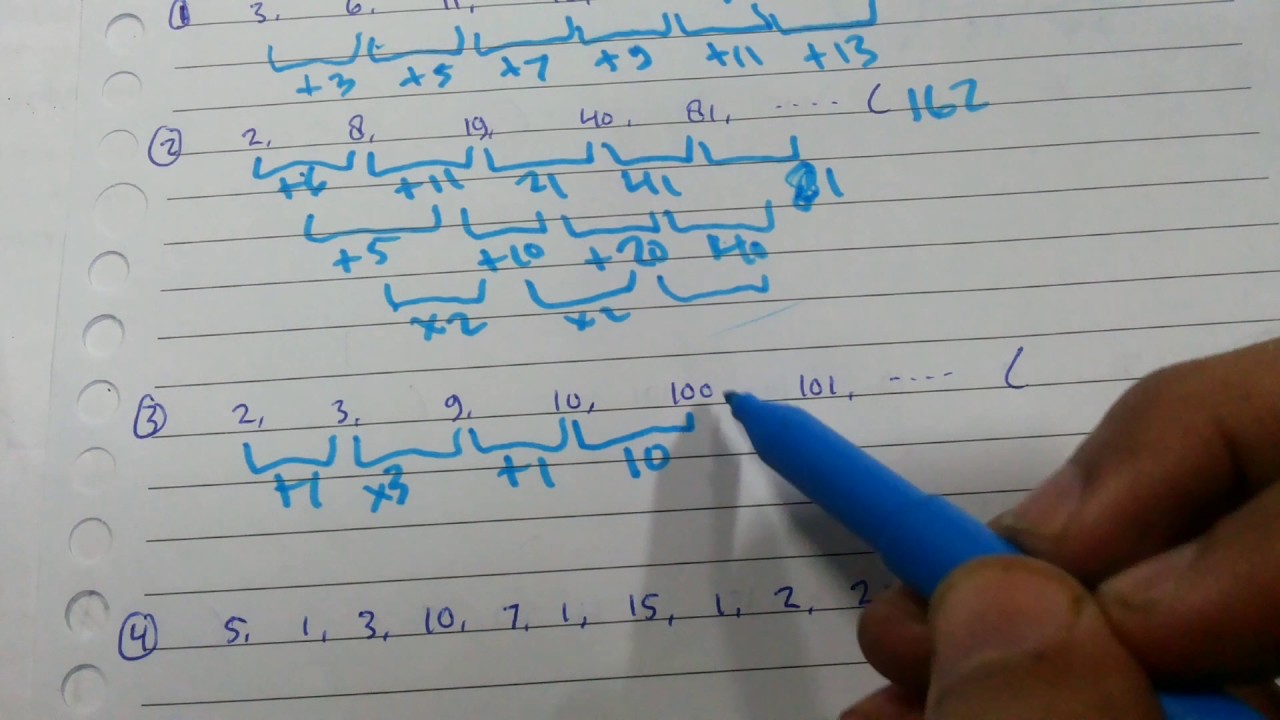 ① 3, 6, 11,
+3 +5 +7 +9 +11 +13
② 2, 8, 19, 40, 81, ..... ( 162
+6 +11 21 41 81
+5 +10 +20 +40
×2 ×2
③ 2, 3, 9, 10, 100, 101, ..... (
+1 ×3 +1 10
④ 5, 1, 3, 10, 7, 1, 15, 1, 2, 2